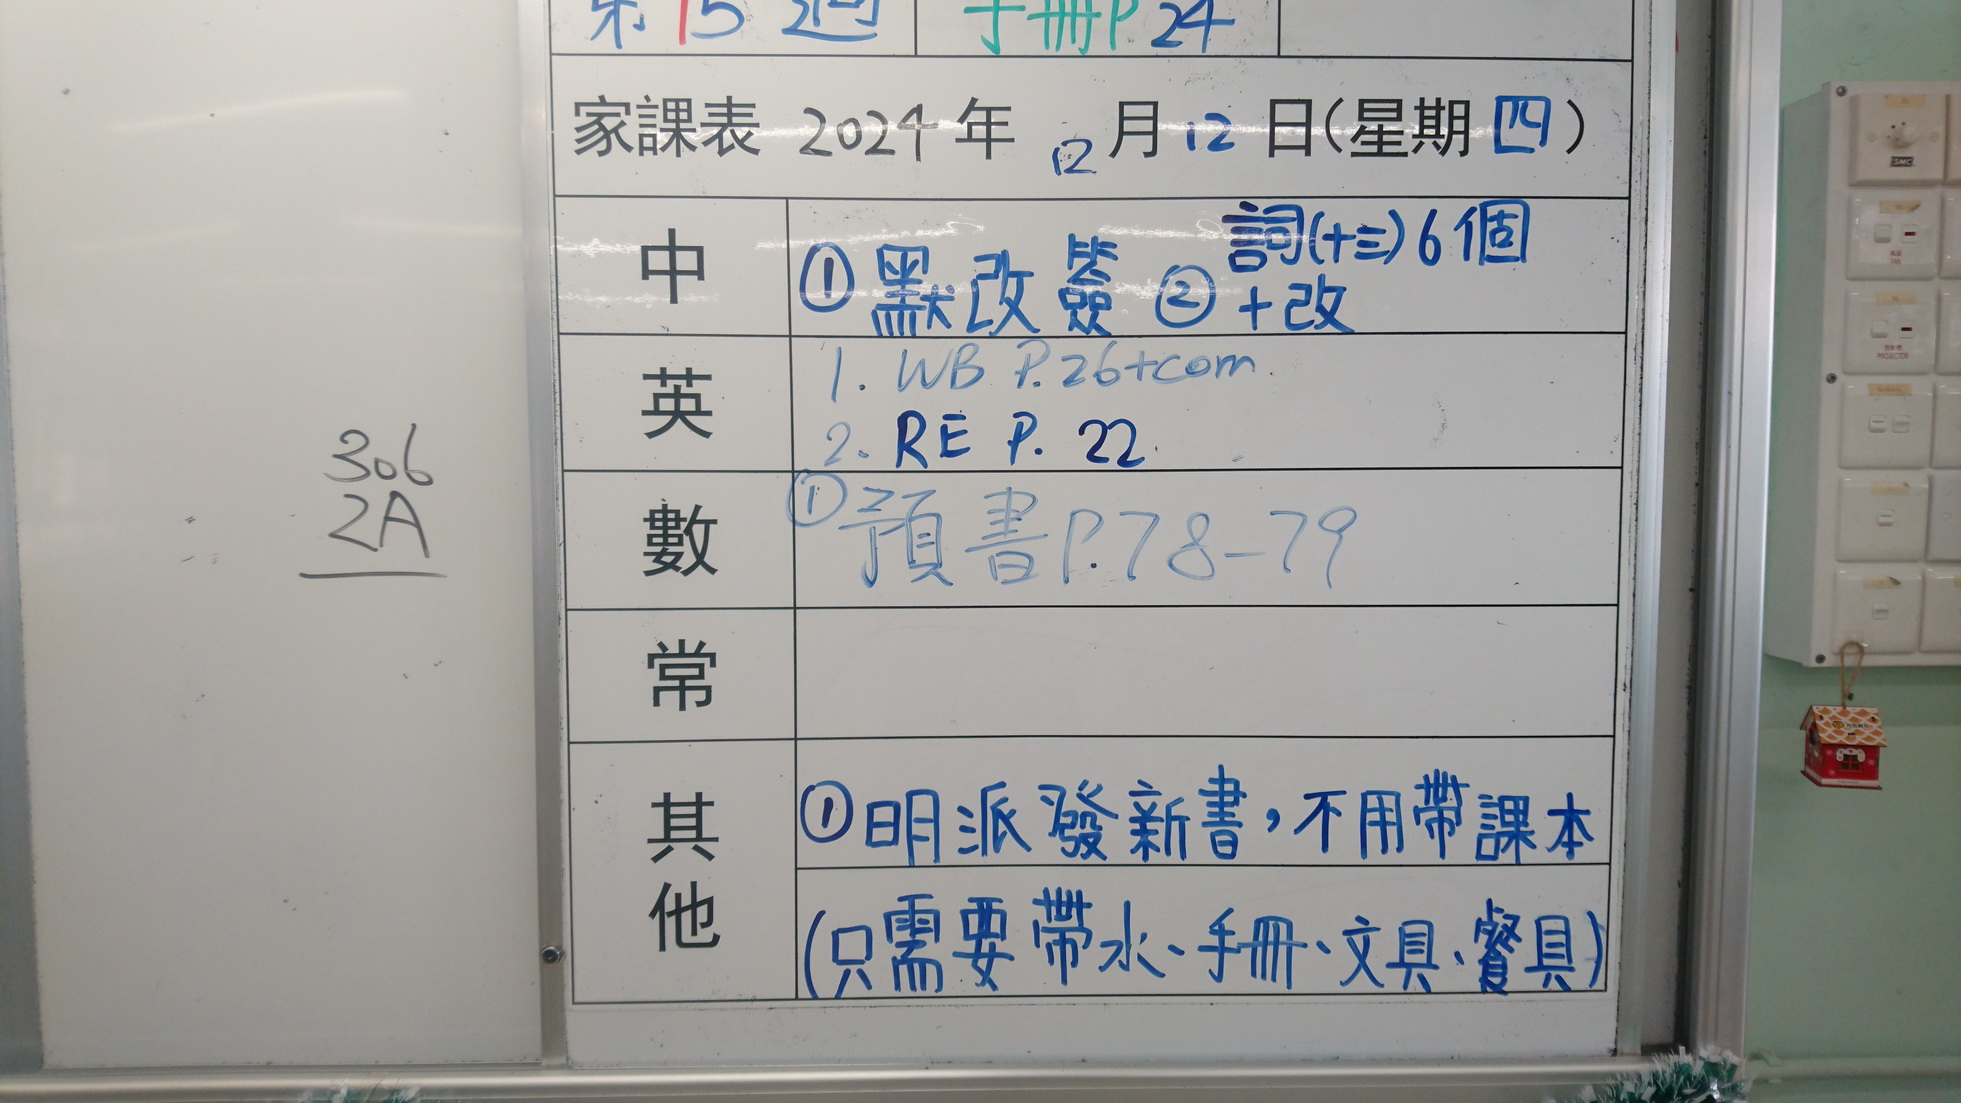 第15週 手冊P 24
家課表 2024年 12月12日(星期四)
中 ①默改簽 ②詞(十三)6個
+改
英 1. WB P.26+com
2. RE P. 22
數 ①預書P.78-79
常
其他 ①明派發新書,不用帶課本
(只需要帶水、手冊、文具、餐具)
306
2A
PROJECTOR